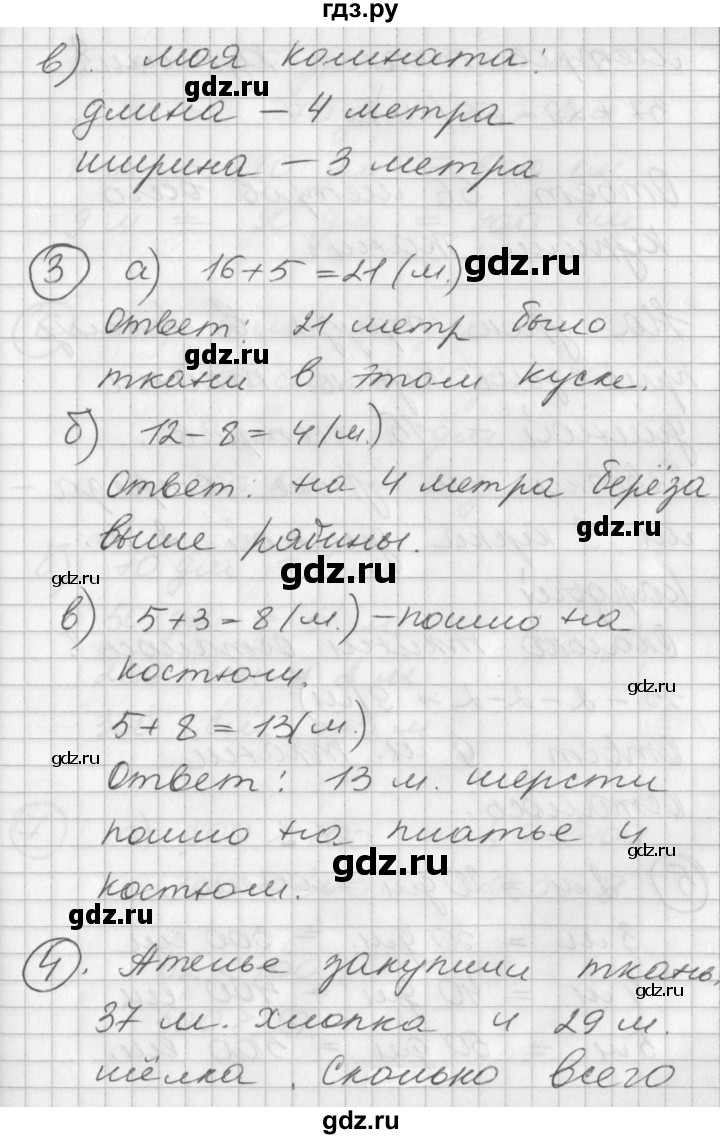 гдз.ру
в). моя комната:
gdz.ru
длина – 4 метра
ширина – 3 метра
3 а) 16+5=21(м.)
gdz.ru
Ответ: 21 метр было
gdz.ru
ткани в этом куске.
б) 12-8=4(м.)
Ответ: на 4 метра берёза
gdz.ru
выше рябины.
gdz.ru
gdz.ru
в) 5+3=8(м.)-пошло на
костюм.
gdz.ru
5+8=13(м.)
gdz.ru
Ответ: 13 м. шерсти
пошло на платье и
gdz.ru
костюм.
gdz.ru
4. Ателье закупили ткань.
gdz.ru
37 м. хлопка и 29 м.
шёлка. Сколько всего
gdz.ru